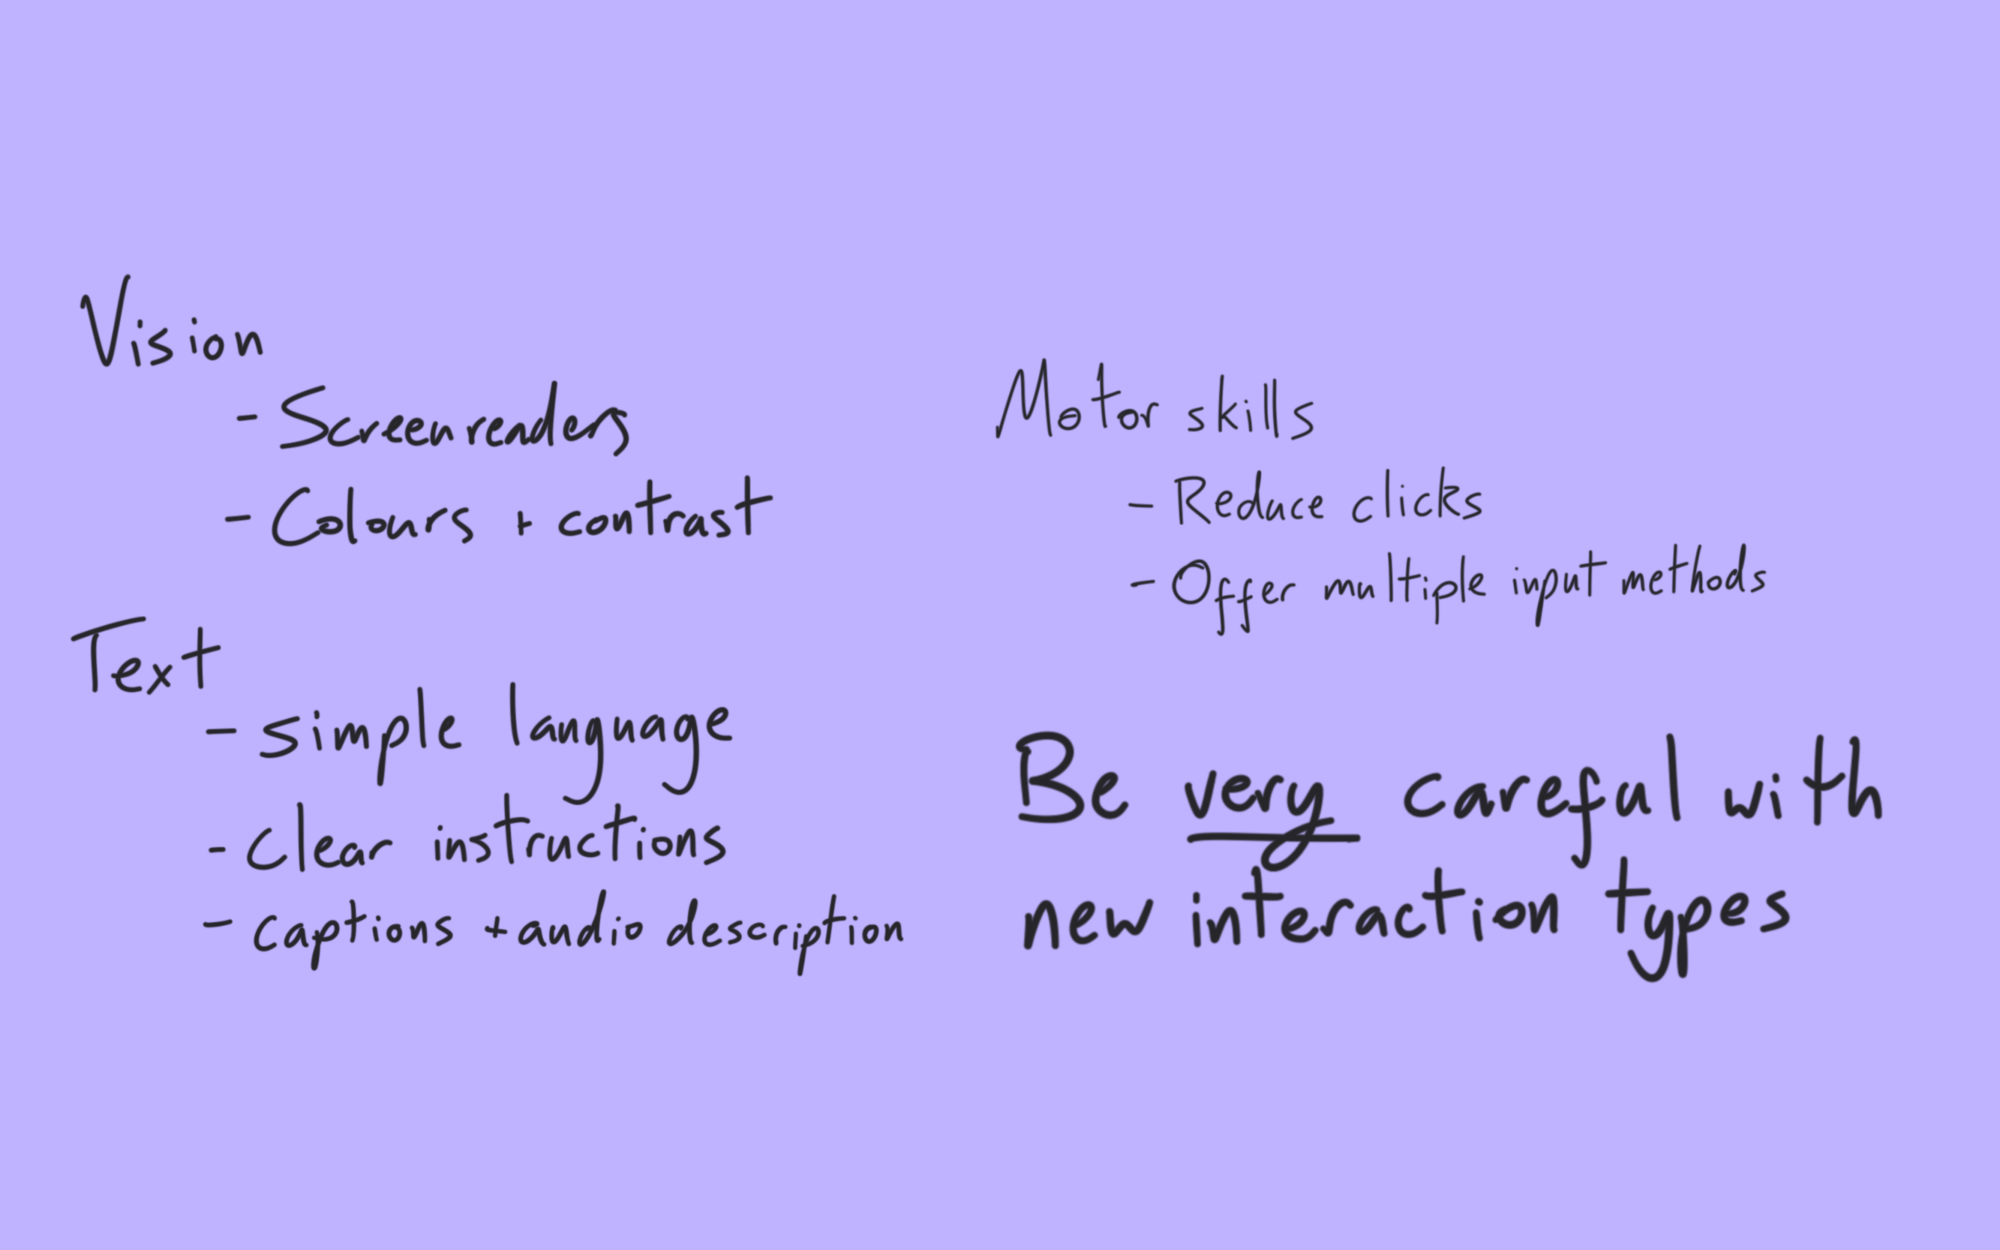 Vision
- Screenreaders
- Colours + contrast
Text
- simple language
- clear instructions
- captions + audio description
Motor skills
- Reduce clicks
- Offer multiple input methods
Be very careful with
new interaction types